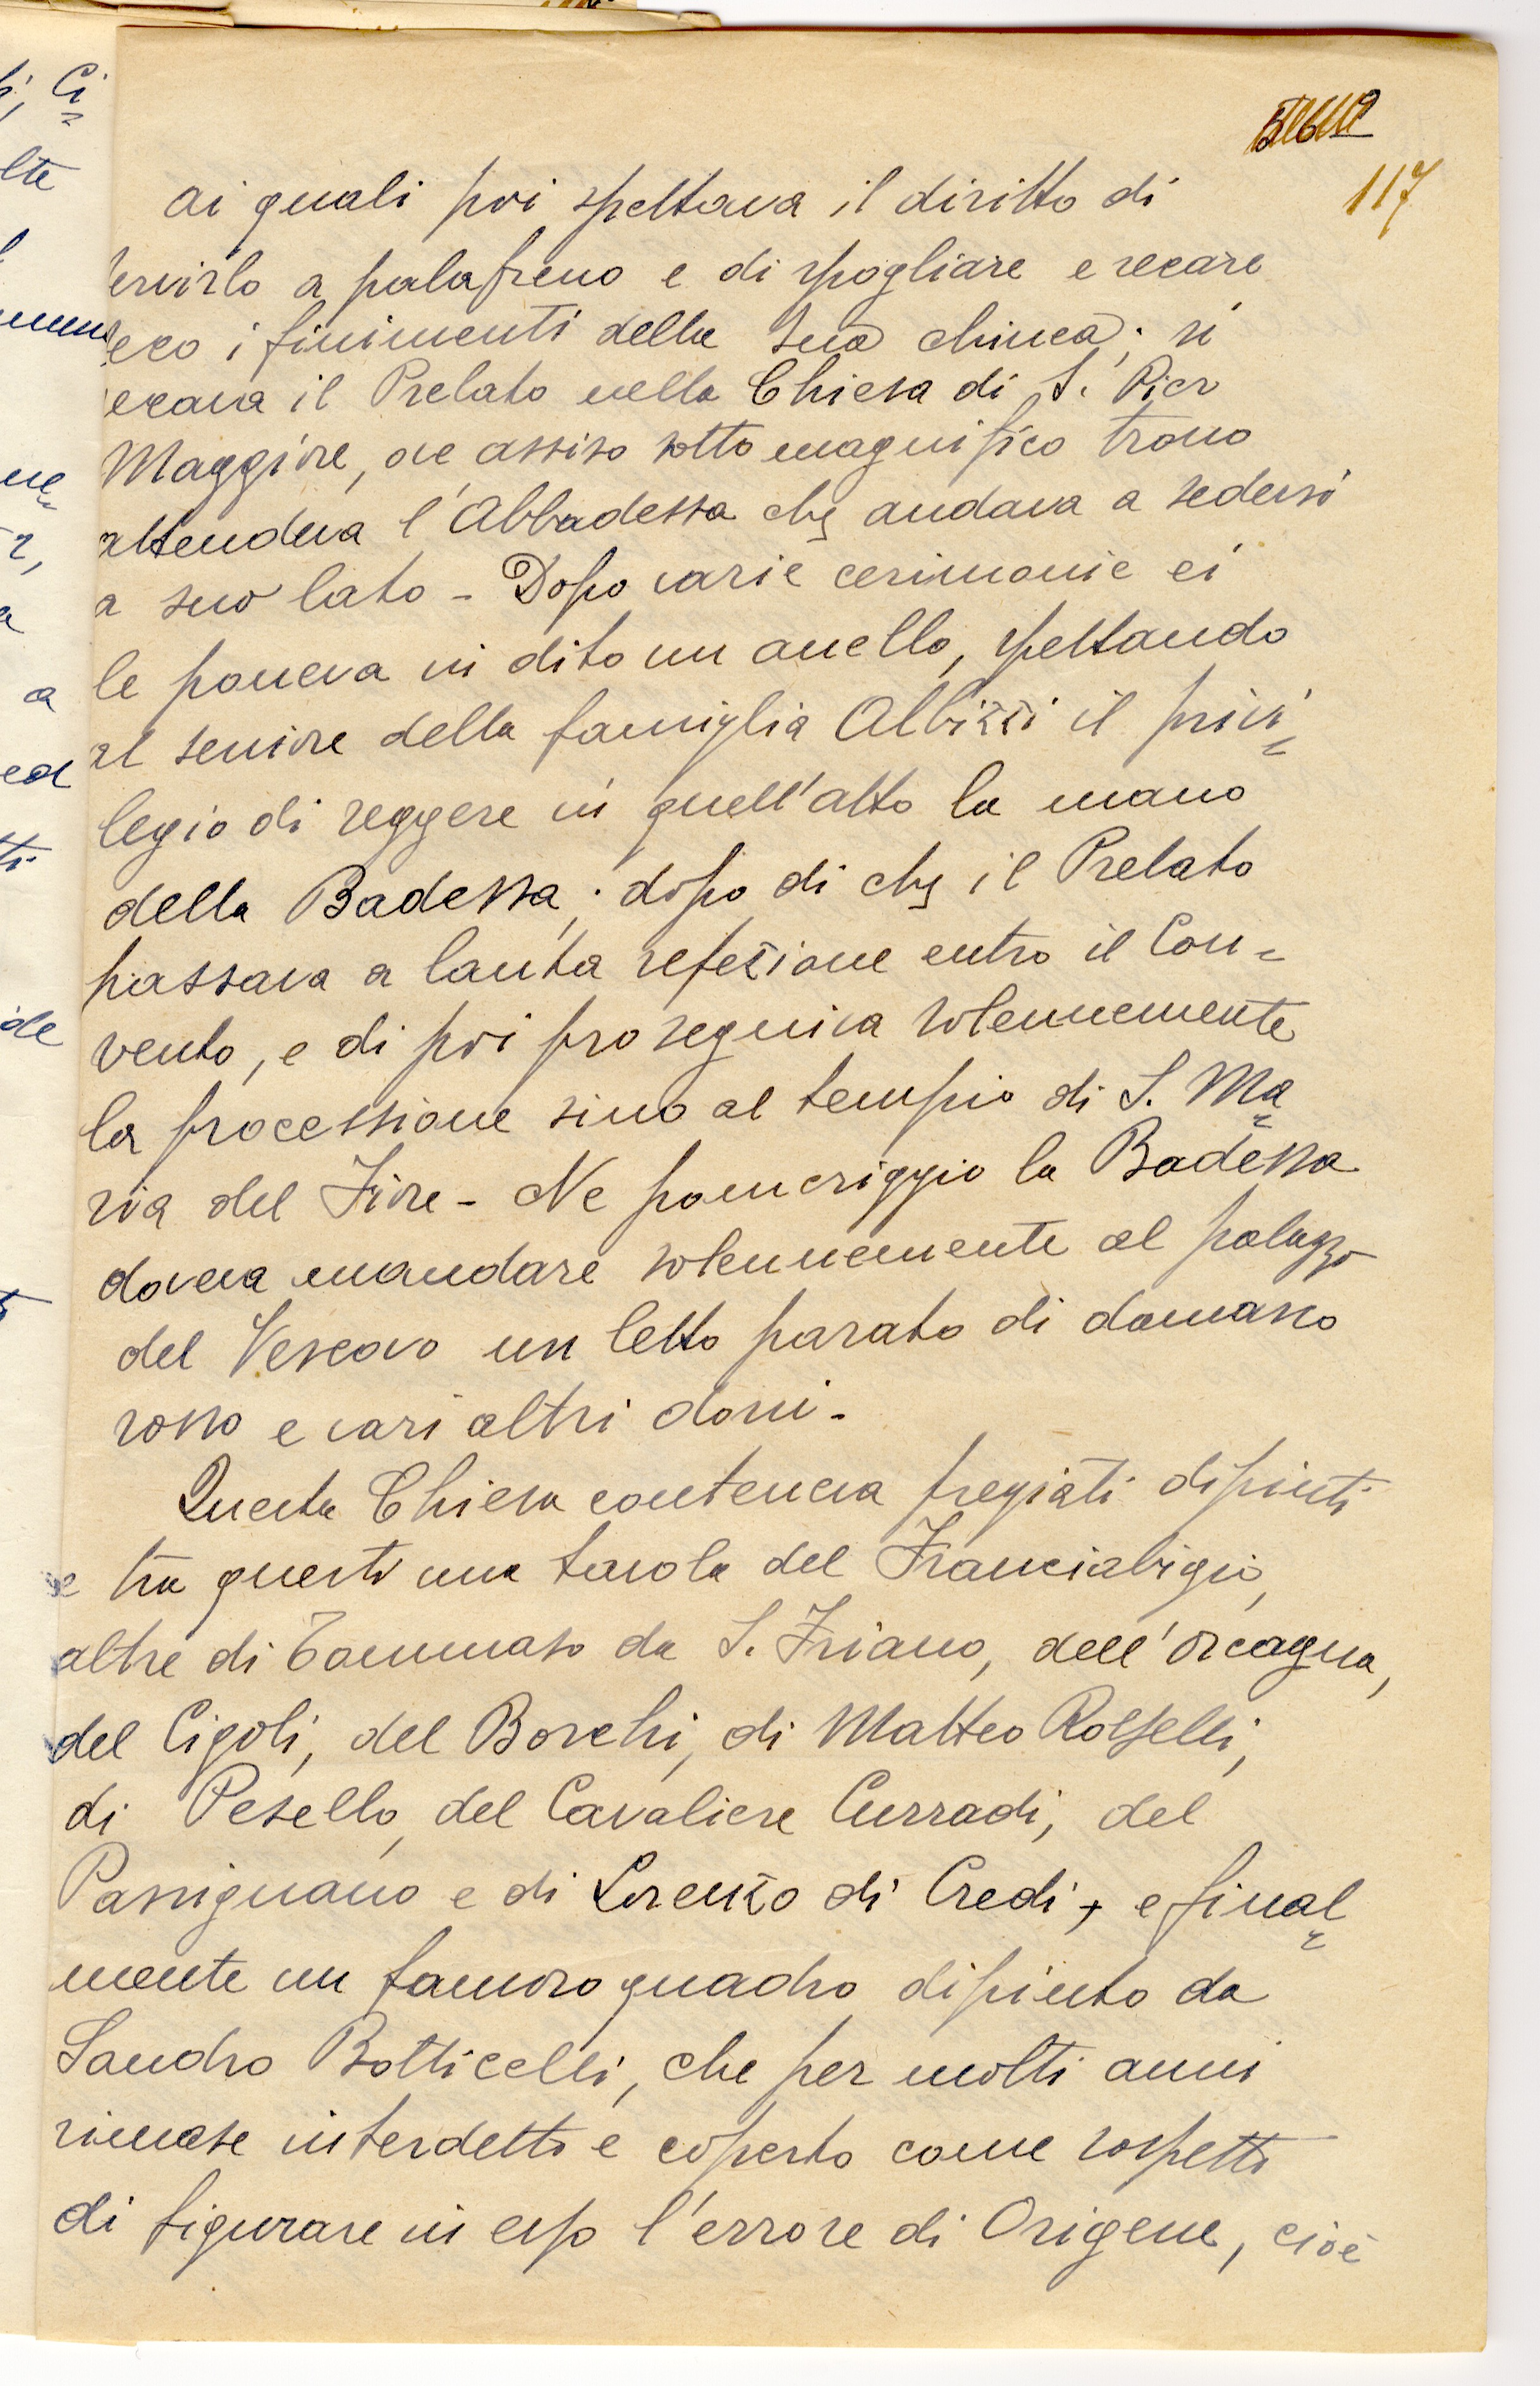 117
ai quali poi spettava il diritto di
servirlo a palafreno e di spogliare e recare
seco i finimenti della sua chinea; si
recava il Prelato nella Chiesa di S. Pier
Maggiore, ove assiso sotto magnifico trono
attendeva l'Abbadessa che andava a sedersi
a suo lato - Dopo varie cerimonie ei
le poneva in dito un anello, spettando
al seniore della famiglia Albizzi il privi=
legio di reggere in quell'atto la mano
della Badessa; dopo di che il Prelato
passava a lauta refezione entro il Con=
vento, e di poi proseguiva solennemente
la processione sino al tempio di S. Ma=
ria del Fiore - Ne pomeriggio la Badessa
doveva mandare solennemente al palazzo
del Vescovo un letto parato di damasco
rosso e vari altri doni.
Questa Chiesa conteneva pregiati dipinti
e tra questi una tavola del Franciabigio,
altre di Tommaso da S. Friano, dell'Orcagna,
del Cigoli, del Borchi, di Matteo Rosselli,
di Pesello, del Cavaliere Curradi, del
Passignano e di Lorenzo di Credi, e final=
mente un famoso quadro dipinto da
Sandro Botticelli, che per molti anni
rimase interdetto e coperto come sospetto
di figurare in esso l'errore di Origene, cioè